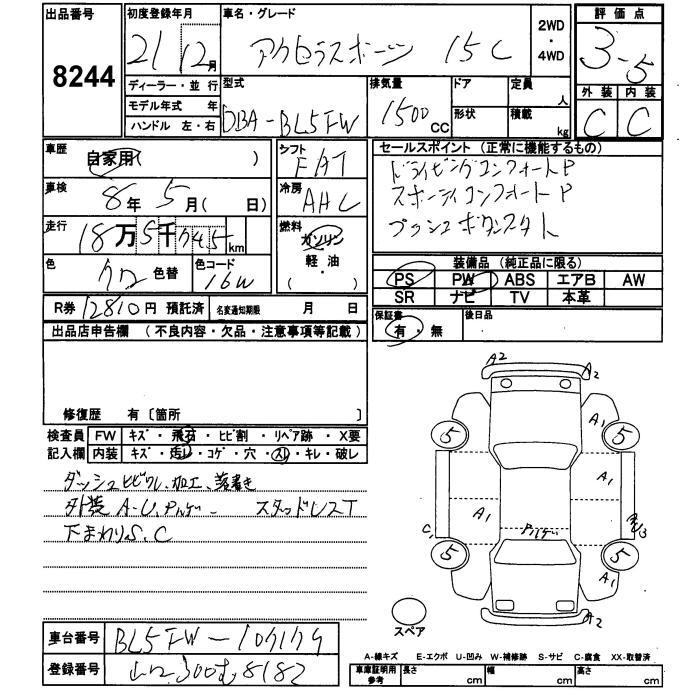 出品番号
8244
初度登録年月
21 12月
ディーラー・並行
モデル年式 年
ハンドル 左・右
車名・グレード
アクセラスポーツ 15C
2WD
・
4WD
評価点
3.5
外装 内装
C C
型式
DBA-BL5FW
排気量
1500 CC
ドア
形状
定員
人
積載
kg
車歴
自家用( )
車検
8年5月( 日)
走行
18万5千745km
色
クロ 色替
色コード
16W
シフト
FAT
冷房
AAC
燃料
ガソリン
軽・油
( )
セールスポイント (正常に機能するもの)
ドライビングコンフォートP
スポーティコンフォートP
プッシュボタンスタート
装備品 (純正品に限る)
PS PW ABS エアB AW
SR ナビ TV 本革
R券 12810円 預託済
名変通知期限 月 日
保証書
有・無
後日品
出品店申告欄 (不良内容・欠品・注意事項等記載)
修復歴 有〔箇所 〕
検査員
記入欄
FW キズ・飛石・ヒビ割・リペア跡・X要
内装 キズ・汚レ・コゲ・穴・スレ・キレ・破レ
ダッシュヒビワレ、加工、落書き
外装 A-U、Pハゲ スタッドレスT
下まわりS、C
車台番号
BL5FW-107179
登録番号
A2 A2
A1
5 5
A1 A1
C1
Pハゲ
5 5
A1
A2
スペア
A-線キズ E-エクボ U-凹み W-補修跡 S-サビ C-腐食 XX-取替済
車庫証明用
参考
長さ cm 幅 cm 高さ cm